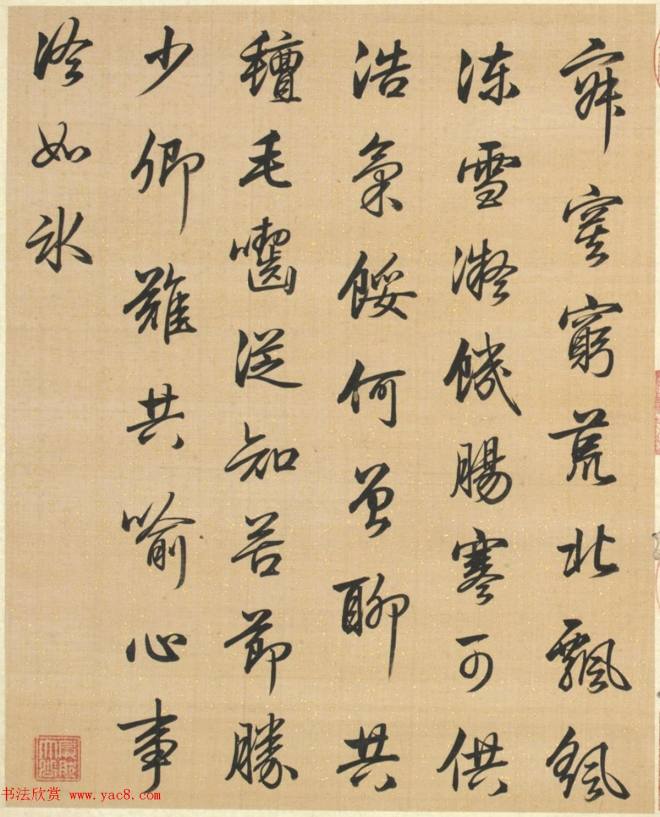 窮荒北飄颻
凍雪凝饑腸寒可供
浩氣餒何曾聊共
氈毛齧從知苦節勝
少卿難共喻心事
冷如冰
书法欣赏 www.yac8.com